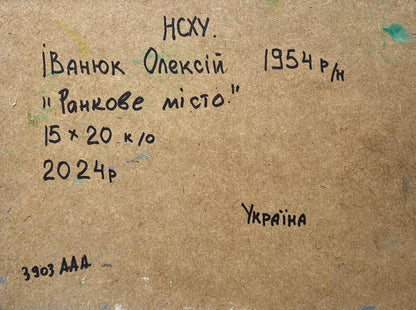 НСХУ.
іванюк Олексій 1954 р/н
"Ранкове місто."
15 × 20 к/о
2024р
Україна
3903 ААА